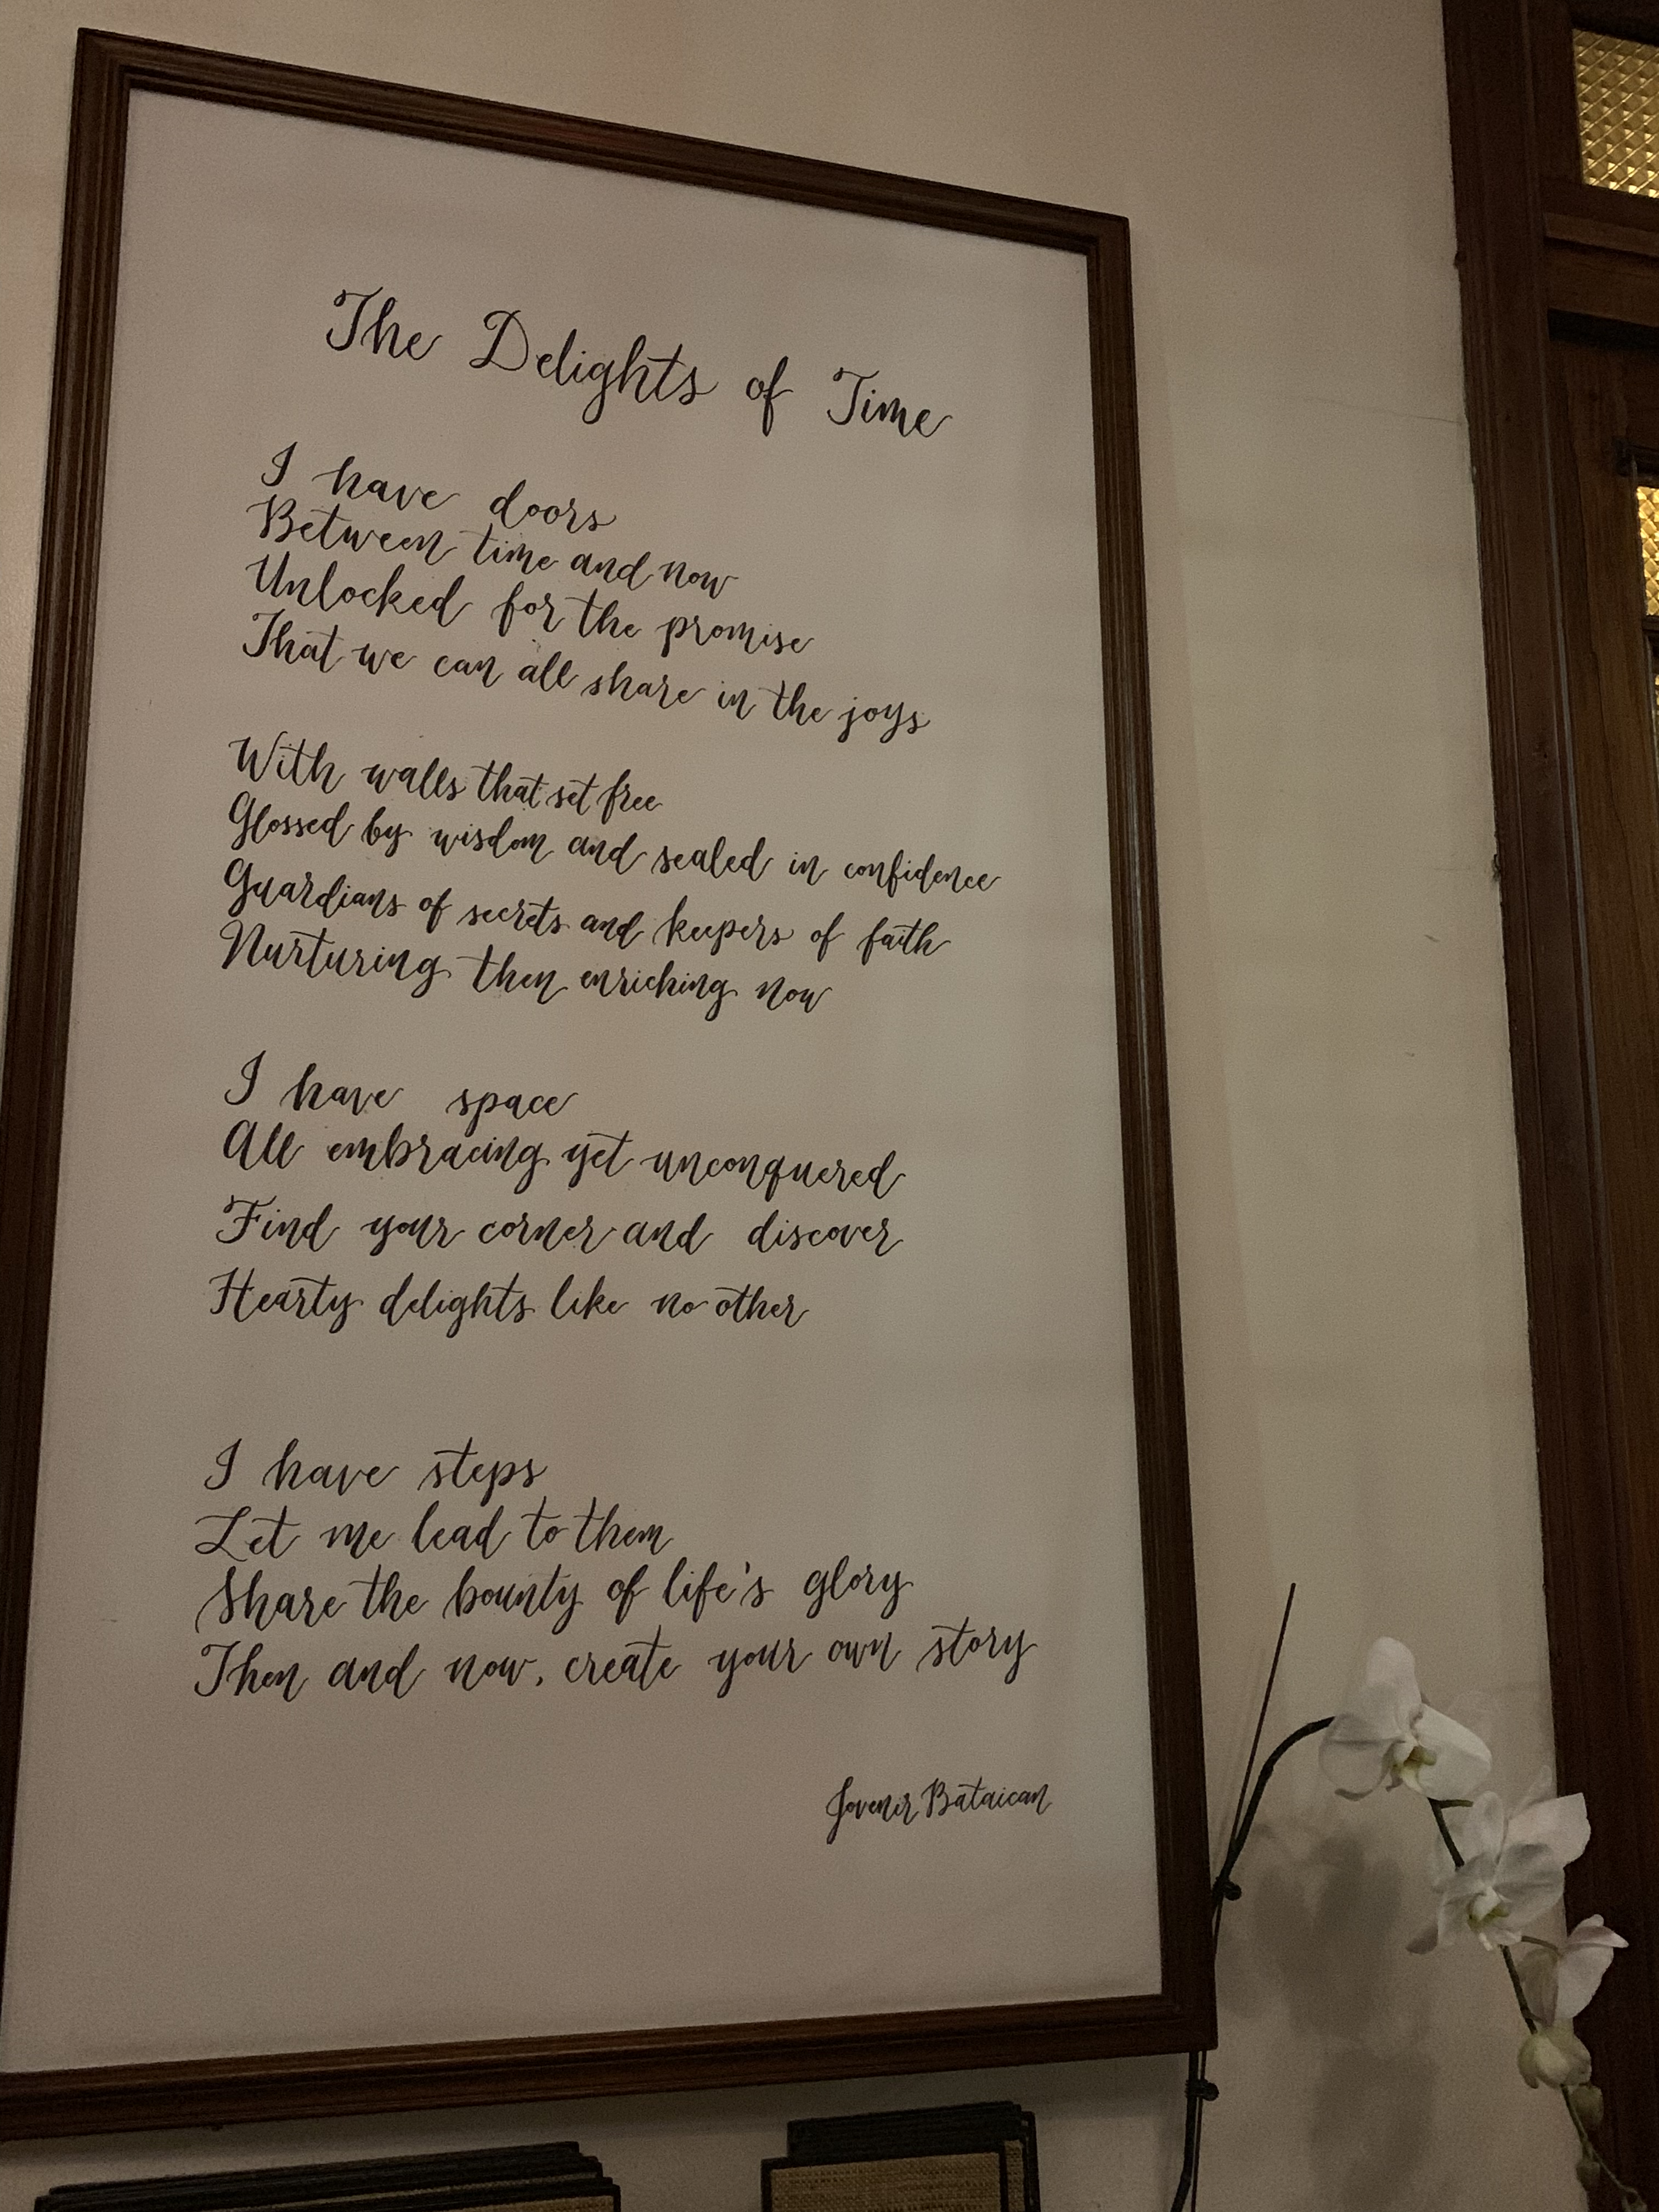 The Delights of Time
I have doors
Between time and now
Unlocked for the promise
That we can all share in the joys
With walls that set free
Glossed by wisdom and sealed in confidence
Guardians of secrets and keepers of faith
Nurturing then enriching now
I have space
All embracing yet unconquered
Find your corner and discover
Hearty delights like no other
I have steps
Let me lead to them
Share the bounty of life's glory
Then and now, create your own story
Jovenir Bataican